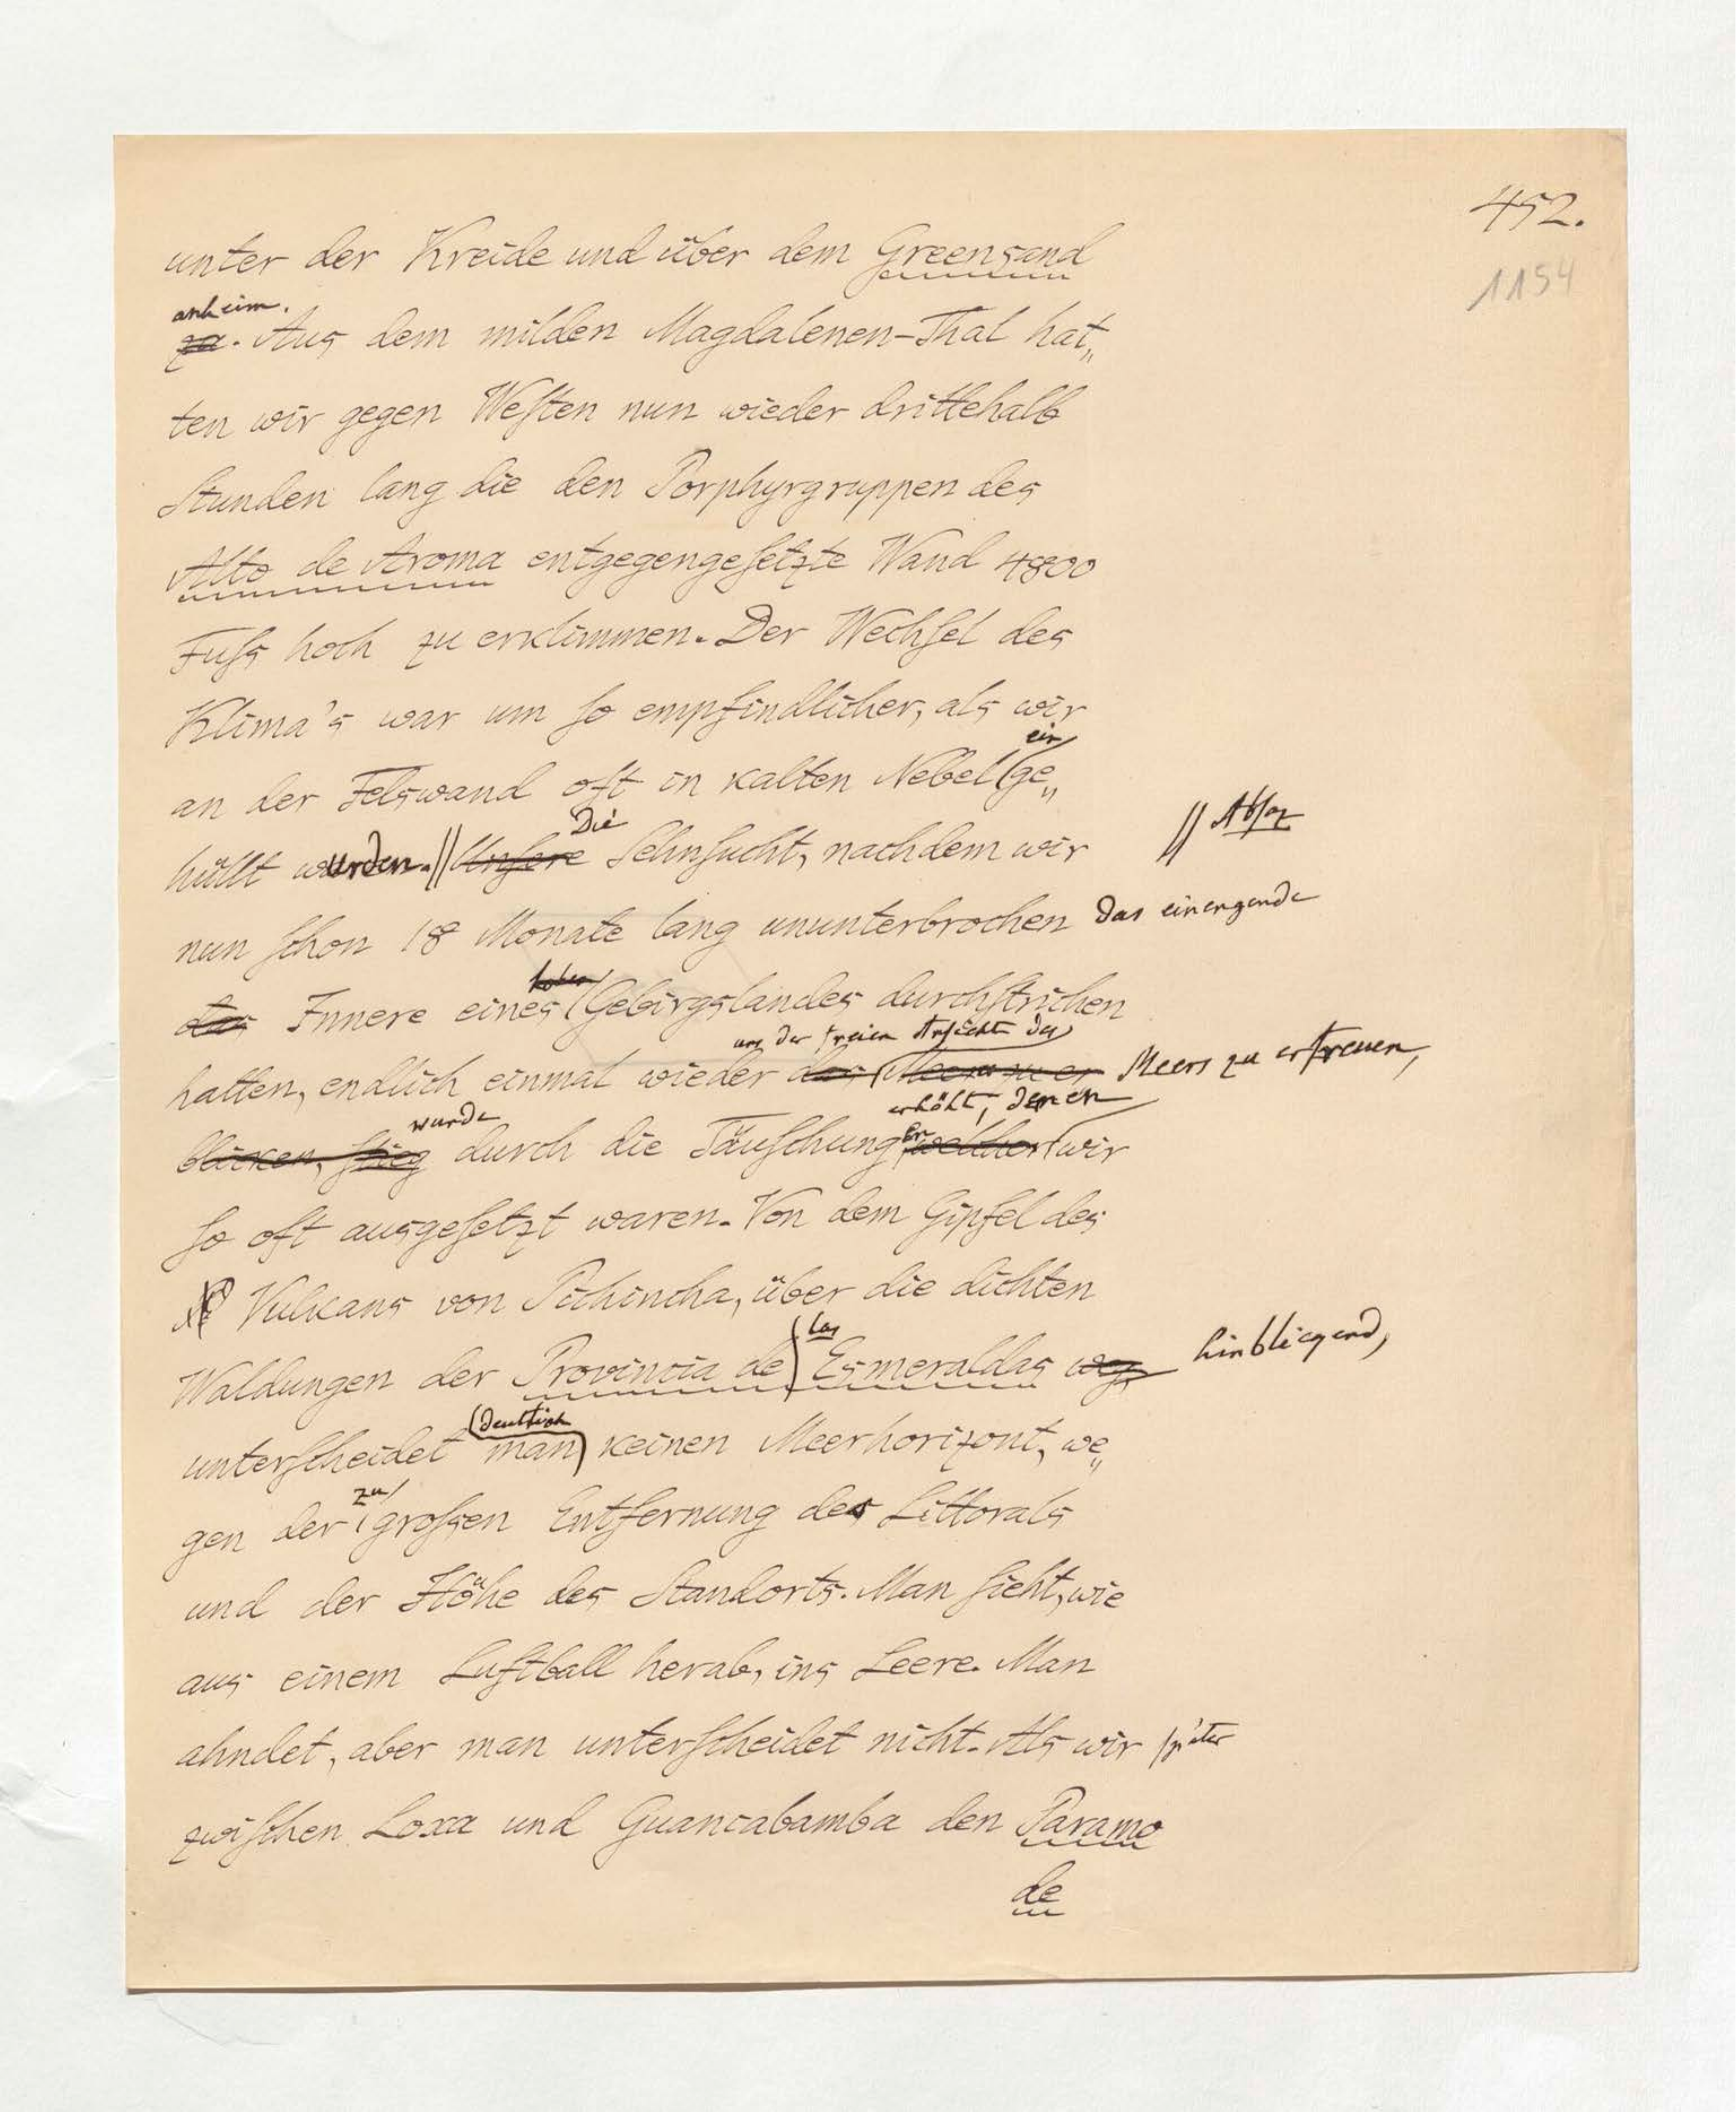 452.
1154
unter der Kreide und über dem Greensand
anheim.
za. Aus dem milden Magdalenen-Thal hat„
ten wir gegen Weſten nun wieder drittehalb
Stunden lang die den Porphyrgruppen des
Alto de Aroma entgegengeſetzte Wand 4800
Fuſs hoch zu erklimmen. Der Wechſel des
Klima's war um ſo empfindlicher, als wir
ein
an der Felswand oft in kalten Nebel ge„
Die
hüllt wurden. // Unſere Sehnſucht, nachdem wir // Absaz
nun ſchon 18 Monate lang ununterbrochen das einengende
hohen
das Innere eines Gebirgslandes durchſtrichen
um der freien Ansicht des
hatten, endlich einmal wieder das Meer zu er Meers zu erfreuen,
wurde erhöht, denen
blicken, ſtieg durch die Täuſchungen welcher wir
ſo oft ausgeſetzt waren. Von dem Gipfel des
Vulkans von Pichincha, über die dichten
las
Waldungen der Provincia de Esmeraldas weg hinbliqend,
deutlich
unterſcheidet man keinen Meerhorizont, we„
zu
gen der groſsen Entfernung des Littorals
und der Höhe des Standorts. Man ſieht, wie
aus einem Luftball herab, ins Leere. Man
ahndet, aber man unterſcheidet nicht. Als wir ſpäter
zwiſchen Loxa und Guancabamba den Paramo
de